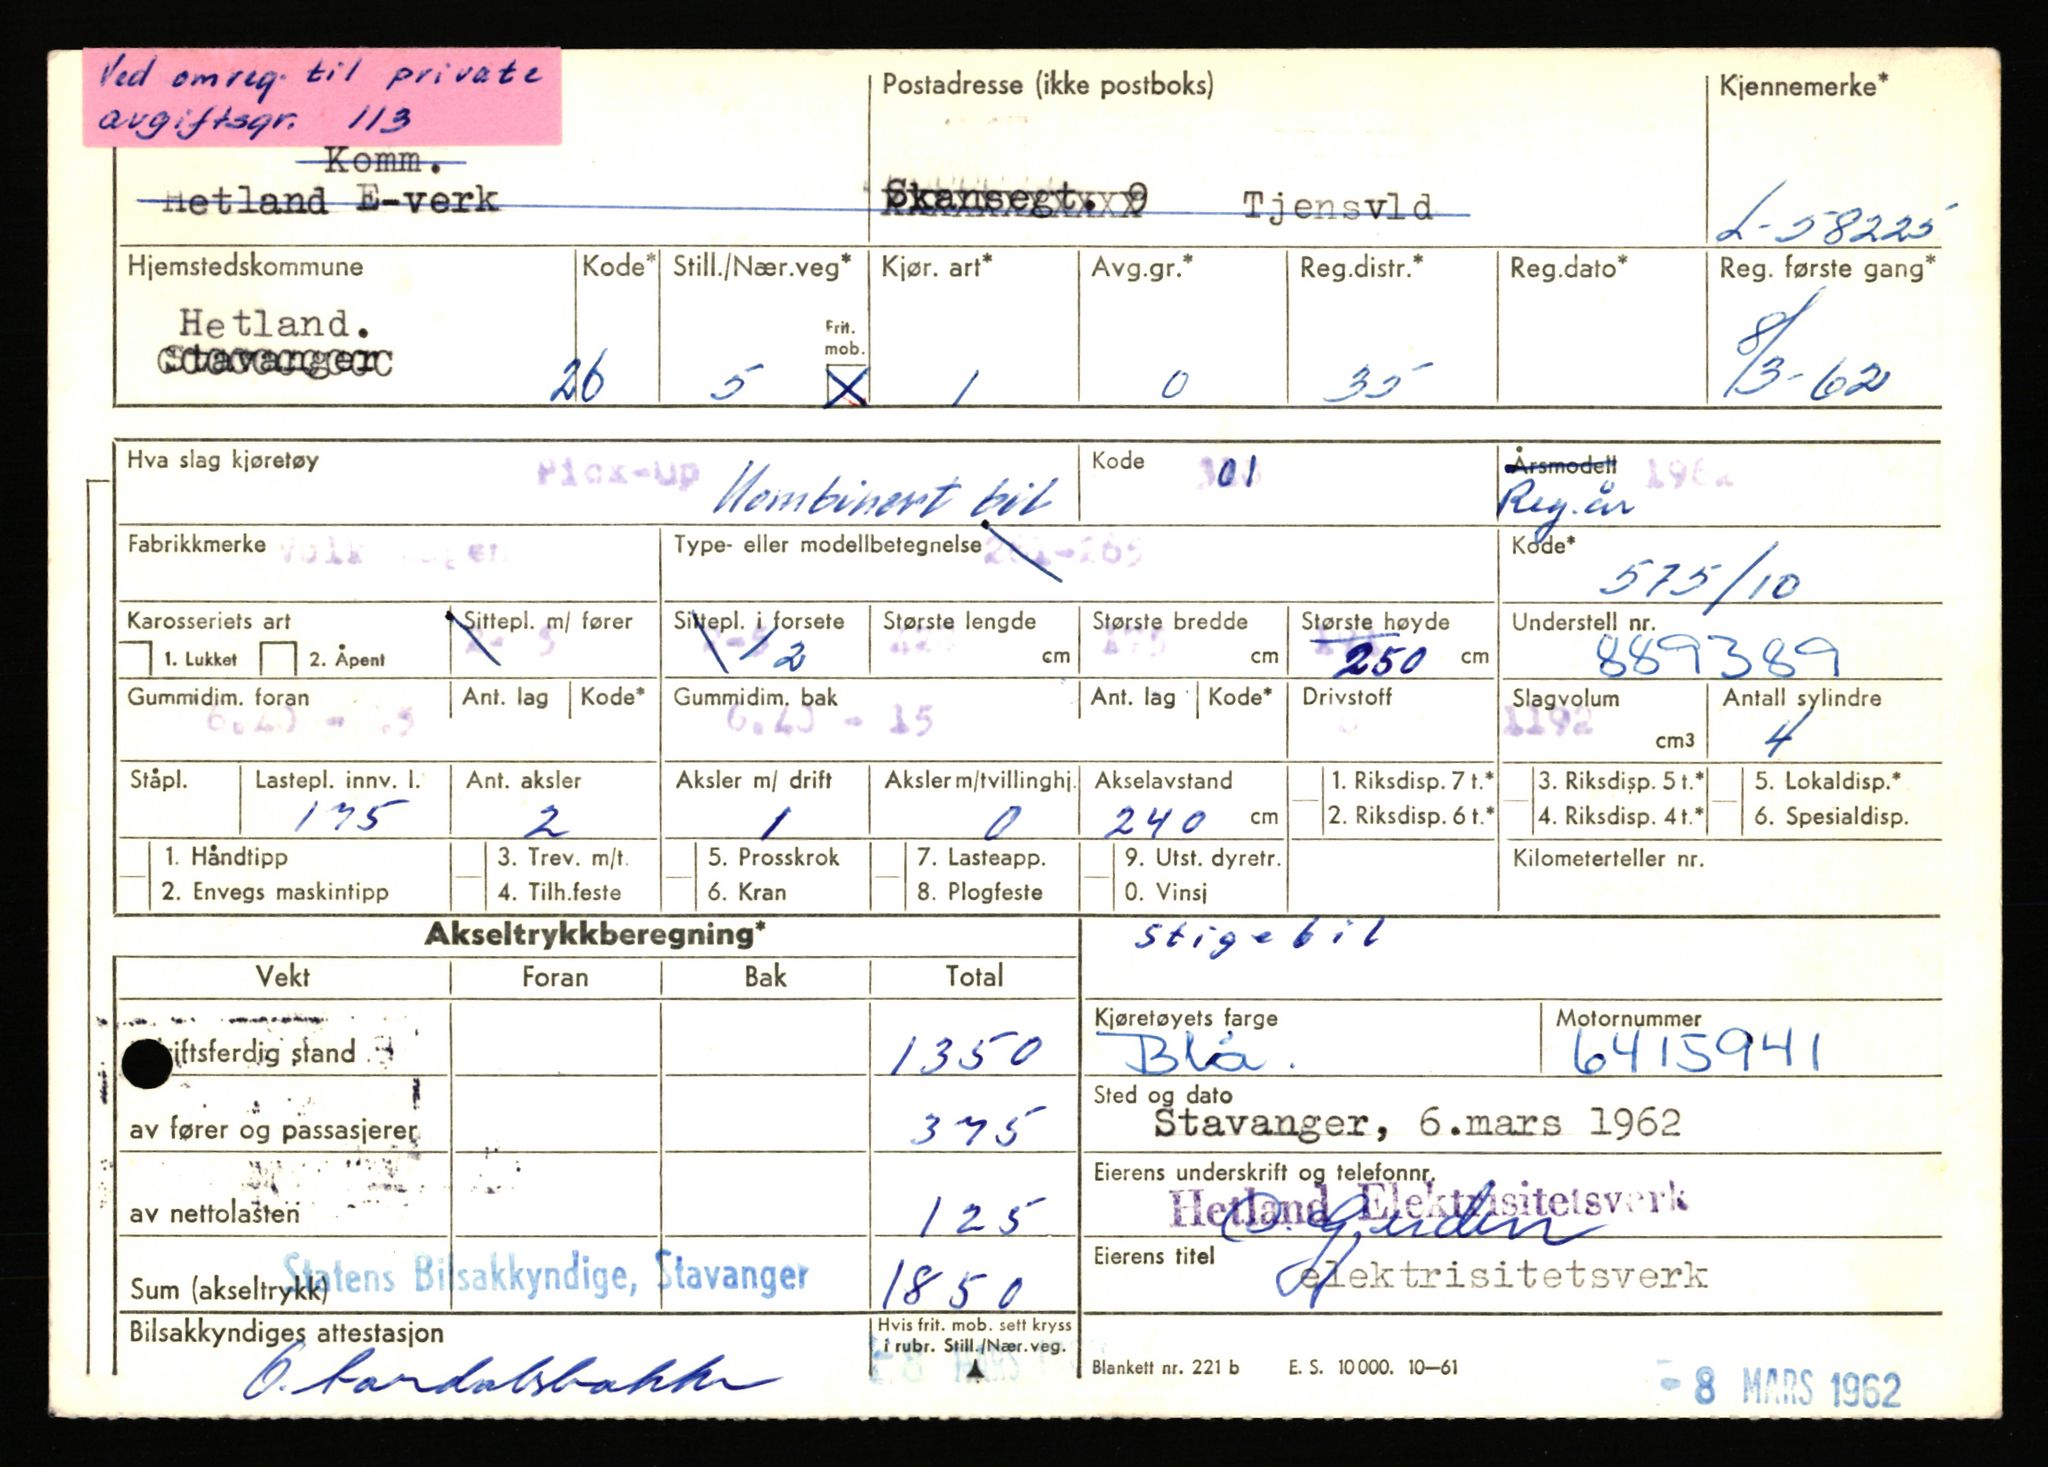 Ved omreg. til private
avgiftsgr. 113
Postadresse (ikke postboks)
Kjennemerke*
Komm.
Hetland E-verk
Skansegt. 9 Tjensvld
L-58225
Hjemstedskommune
Kode*
Still./Nær.veg*
Kjør. art*
Avg.gr.*
Reg.distr.*
Reg.dato*
Reg. første gang*
Hetland.
Stavanger
Frit.
mob.
26
5
X
1
0
35
8/3-62
Hva slag kjøretøy
Pick-up
Kombinert bil
Kode
01
Årsmodell 1962
Reg.år
Fabrikkmerke
Type- eller modellbetegnelse
261-265
Kode*
575/10
Karosseriets art
Sittepl. m/ fører
Sittepl. i forsete
Største lengde
Største bredde
Største høyde
Understell nr.
1. Lukket
2. Åpent
2
cm
175
cm
250 cm
889389
Gummidim. foran
Ant. lag
Kode*
Gummidim. bak
Ant. lag
Kode*
Drivstoff
Slagvolum
Antall sylindre
6.40 - 15
6.40 - 15
1192
cm3
4
Ståpl.
Lastepl. innv. l.
Ant. aksler
Aksler m/ drift
Aksler m/tvillinghj.
Akselavstand
1. Riksdisp. 7 t.*
3. Riksdisp. 5 t.*
5. Lokaldisp.*
175
2
1
0
240 cm
2. Riksdisp. 6 t.*
4. Riksdisp. 4 t.*
6. Spesialdisp.
1. Håndtipp
3. Trev. m/t.
5. Prosskrok
7. Lasteapp.
9. Utst. dyretr.
Kilometerteller nr.
2. Envegs maskintipp
4. Tilh.feste
6. Kran
8. Plogfeste
0. Vinsj
Akseltrykkberegning*
stigebil
Vekt
Foran
Bak
Total
Kjøretøyets farge
Motornummer
iftsferdig stand
1350
Blå.
6415941
Sted og dato
Stavanger, 6.mars 1962
av fører og passasjerer
375
Eierens underskrift og telefonnr.
Hetland Elektrisitetsverk
av nettolasten
125
Eierens titel
elektrisitetsverk
Statens Bilsakkyndige, Stavanger
Sum (akseltrykk)
1850
Bilsakkyndiges attestasjon
Hvis frit. mob. sett kryss
i rubr. Still./Nær.veg.
-8 MARS
Blankett nr. 221 b
E. S. 10 000. 10—61
-8 MARS 1962